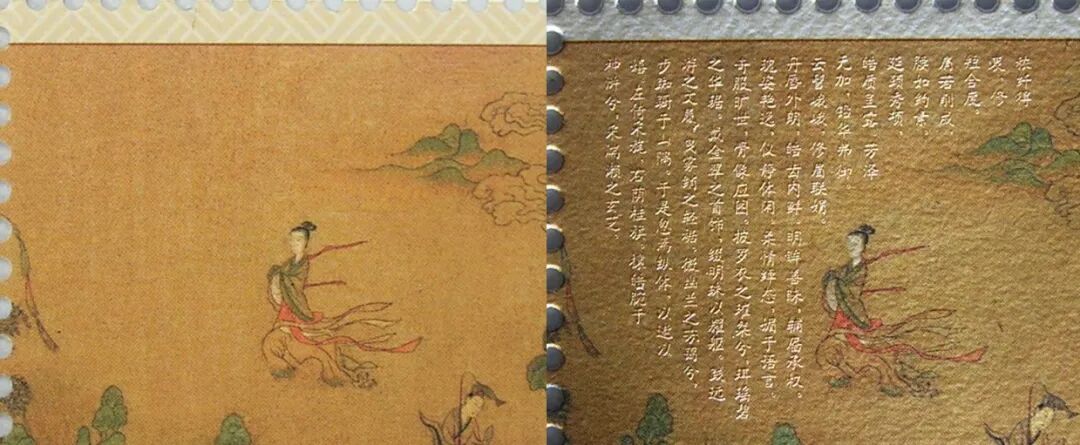 秾纤得
衷,修
短合度。
肩若削成,
腰如约素。
延颈秀项,
皓质呈露。芳泽
无加,铅华弗御。
云髻峨峨,修眉联娟。
丹唇外朗,皓齿内鲜,明眸善睐,辅靥承权。
瑰姿艳逸,仪静体闲。柔情绰态,媚于语言。
奇服旷世,骨像应图。披罗衣之璀粲兮,珥瑶碧
之华琚。戴金翠之首饰,缀明珠以耀躯。践远
游之文履,曳雾绡之轻裾。微幽兰之芳蔼兮,
步踟蹰于山隅。于是忽焉纵体,以遨以
嬉。左倚采旄,右荫桂旗。攘皓腕于
神浒兮,采湍濑之玄芝。